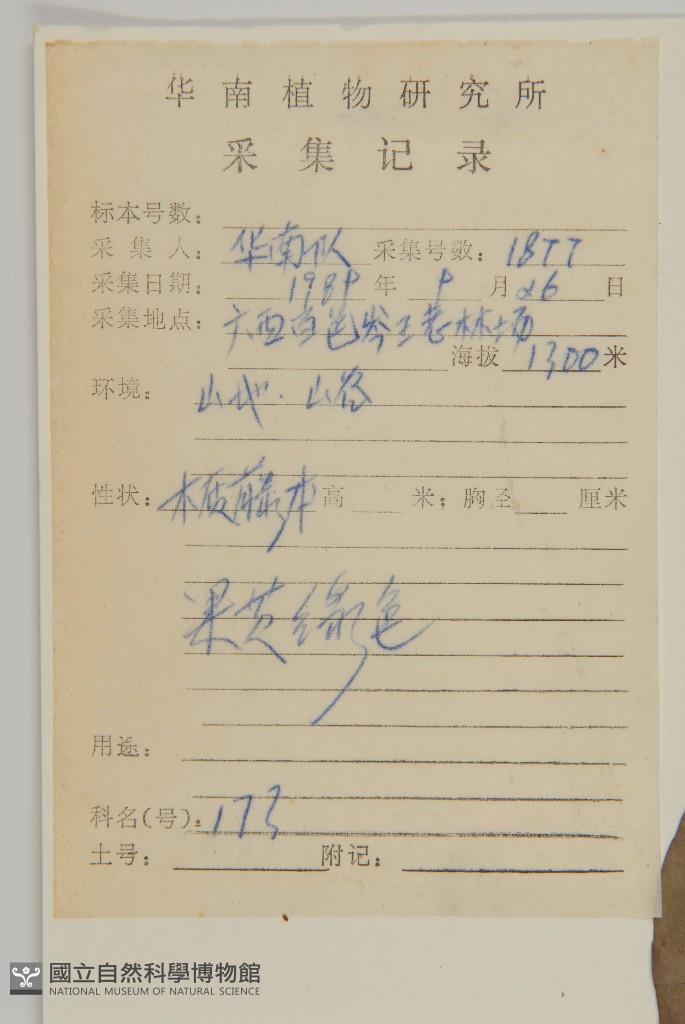 华南植物研究所
采集记录
标本号数：
采集人：华南队 采集号数：1877
采集日期：1989年9月26日
采集地点：广西百色岑王老林场
海拔1300米
环境：山地．山谷
性状：木质藤本高 米；胸径 厘米
果黄绿色
用途：
科名(号)：173
土号： 附记：
國立自然科學博物館
NATIONAL MUSEUM OF NATURAL SCIENCE